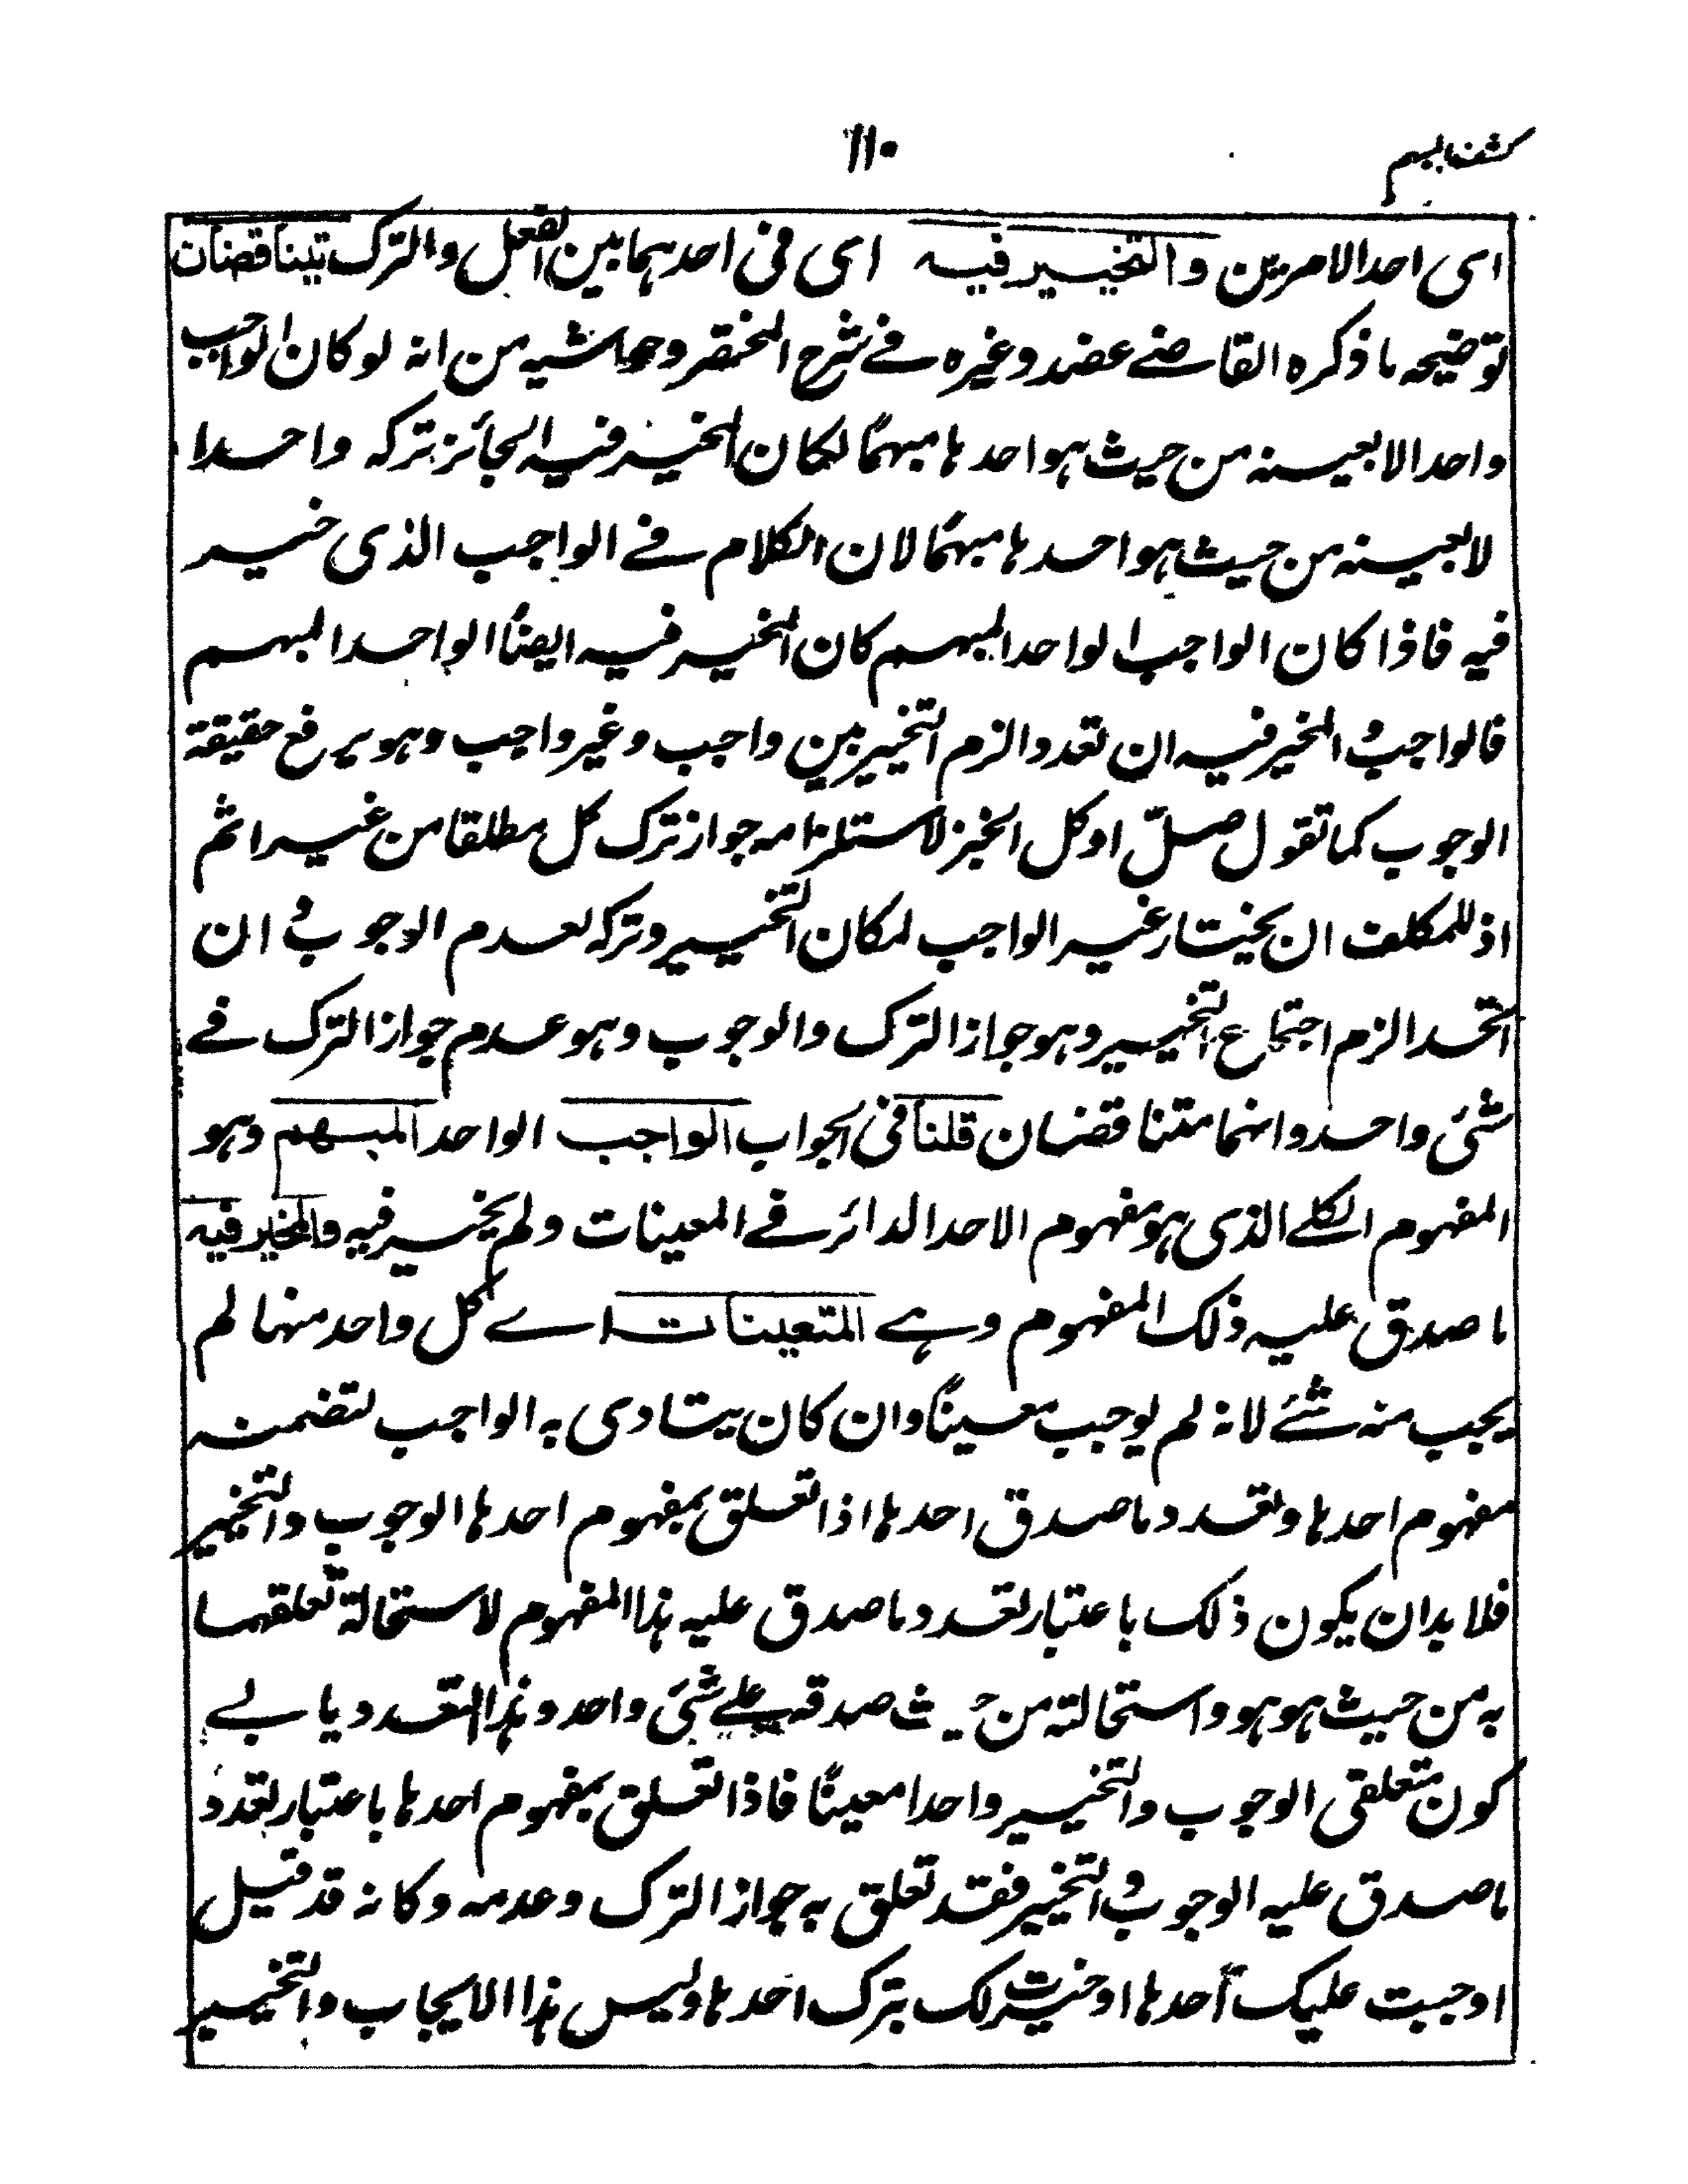 كشف المبهم
١١٠
اى احد الامرين والتخيير فيه اى فى احدهما بين الفعل والترك يتناقضان
توضيحه ما ذكره القاضے عضد وغيره فے شرح المختصر وحاشيه من انه لو كان الواجب
واحدا لا بعينه من حيث هو احدها مبهمًا لكان المخير فيه الجائز تركه واحدا
لا بعينه من حيث هو احدها مبهمًا لان الكلام فے الواجب الذى خير
فيه فاذا كان الواجب الواحد المبهم كان المخير فيه ايضًا الواحد المبهم
فالواجب و المخير فيه ان تعددا لزم التخيير بين واجب وغير واجب وهو يرفع حقيقة
الوجوب كما تقول صلّ او كل الخبز لاستلزامه جواز ترك كل مطلقا من غير اثم
اذ للمكلف ان يختار غير الواجب لمكان التخيير وتركه لعدم الوجوب و ان
اتحدا لزم اجتماع التخيير وهو جواز الترك والوجوب وهو عدم جواز الترك فے
شئ واحد وانهما متناقضان قلنا فى الجواب الواجب الواحد المبهم وهو
المفهوم الكلے الذى هو مفهوم الاحد الدائر فے المعينات ولم يخير فيه والمخير فيه
ما صدق عليه ذلك المفهوم وهے المتعينات اے كل واحد منها لم
يجب منه شئے لانه لم يوجب معينًا وان كان يتادى به الواجب لتضمنه
مفهوم احدها وتعدد ما صدق احدها اذا تعلق بمفهوم احدها الوجوب والتخيير
فلا بد ان يكون ذلك باعتبار تعدد ما صدق عليه هذا المفهوم لاستحالة تعلقهما
به من حيث هو هو واستحالته من حيث صدقه علے شئ واحد وهذا التعدد يابے
كون متعلقى الوجوب والتخيير واحدا معينًا فاذا تعلق بمفهوم احدها باعتبار تعدد
ما صدق عليه الوجوب و التخيير فقد تعلق به جواز الترك وعدمه وكانه قد قيل
اوجبت عليك احدها او خيرت لك بترك احدها وليس هذا الايجاب والتخيير